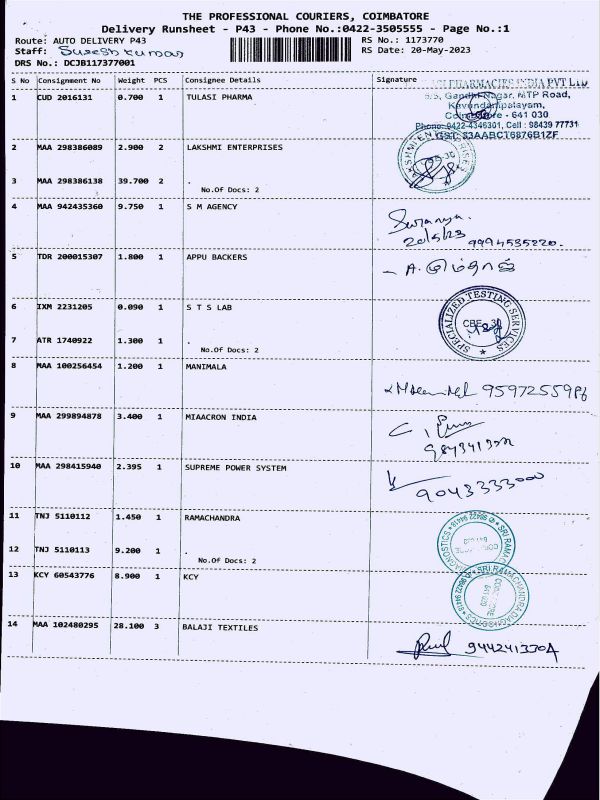 THE PROFESSIONAL COURIERS, COIMBATORE
Delivery Runsheet - P43 - Phone No.:0422-3505555 - Page No.:1
Route: AUTO DELIVERY P43 RS No.: 1173770
Staff: Suresh Kumar RS Date: 20-May-2023
DRS No.: DCJB117377001
S No Consignment No Weight PCS Consignee Details Signature
1 CUD 2016131 0.700 1 TULASI PHARMA
PHARMACIES INDIA PVT LTD
Gandhi Nagar, MTP Road,
Kavundampalayam,
Coimbatore - 641 030
Phone: 0422-4346301, Cell : 98439 77731
GST: 33AABCT6876B1ZF
2 MAA 298386089 2.900 2 LAKSHMI ENTERPRISES
3 MAA 298386138 39.700 2 .
No.Of Docs: 2
4 MAA 942435360 9.750 1 S M AGENCY
Suranya.
20/5/23 9994535220.
5 TDR 200015307 1.800 1 APPU BACKERS
6 IXM 2231205 0.090 1 S T S LAB
SPECIALIZED TESTING SERVICES
CBE - 30
7 ATR 1740922 1.300 1 .
No.Of Docs: 2
8 MAA 100256454 1.200 1 MANIMALA
9 MAA 299894878 3.400 1 MIAACRON INDIA
10 MAA 298415940 2.395 1 SUPREME POWER SYSTEM
9043333000
11 TNJ 5110112 1.450 1 RAMACHANDRA
12 TNJ 5110113 9.200 1 .
No.Of Docs: 2
13 KCY 60543776 8.900 1 KCY
SRI RAMACHANDRA DIAGNOSTICS
14 MAA 102480295 28.100 3 BALAJI TEXTILES
9442413304